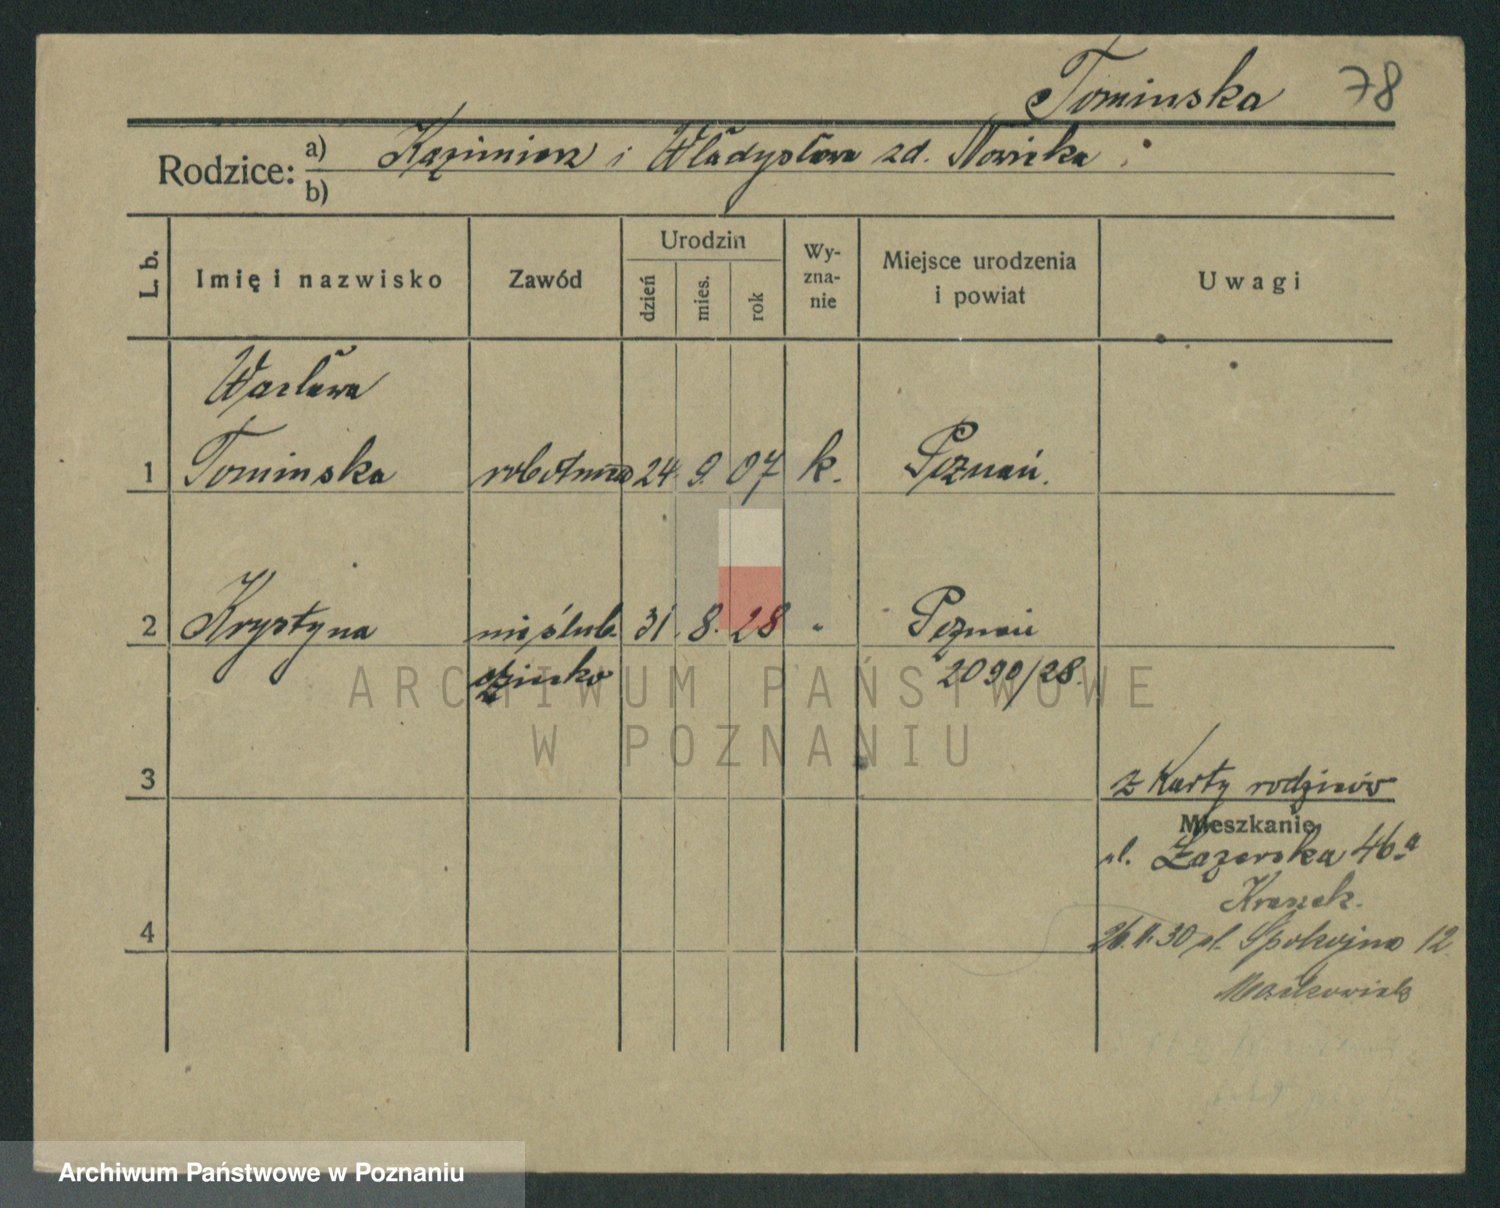 Tominska 78
Rodzice: a) Kazimierz i Władysława zd. Nowicka
b)
L. b. Imię i nazwisko Zawód Urodzin dzień mies. rok Wy-zna-nie Miejsce urodzenia i powiat Uwagi
Wacława
1 Tominska robotnica 24. 9. 07 k. Poznań.
2 Krystyna nieślub. 31. 8. 28 " Poznań
dziecko 2090/28.
ARCHIWUM PAŃSTWOWE
W POZNANIU
3 z Karty rodziców
Mieszkanie
ul. Łazarska 46a
4 26.11.30 ul. Spokojna 12
Maćkowiak
Archiwum Państwowe w Poznaniu